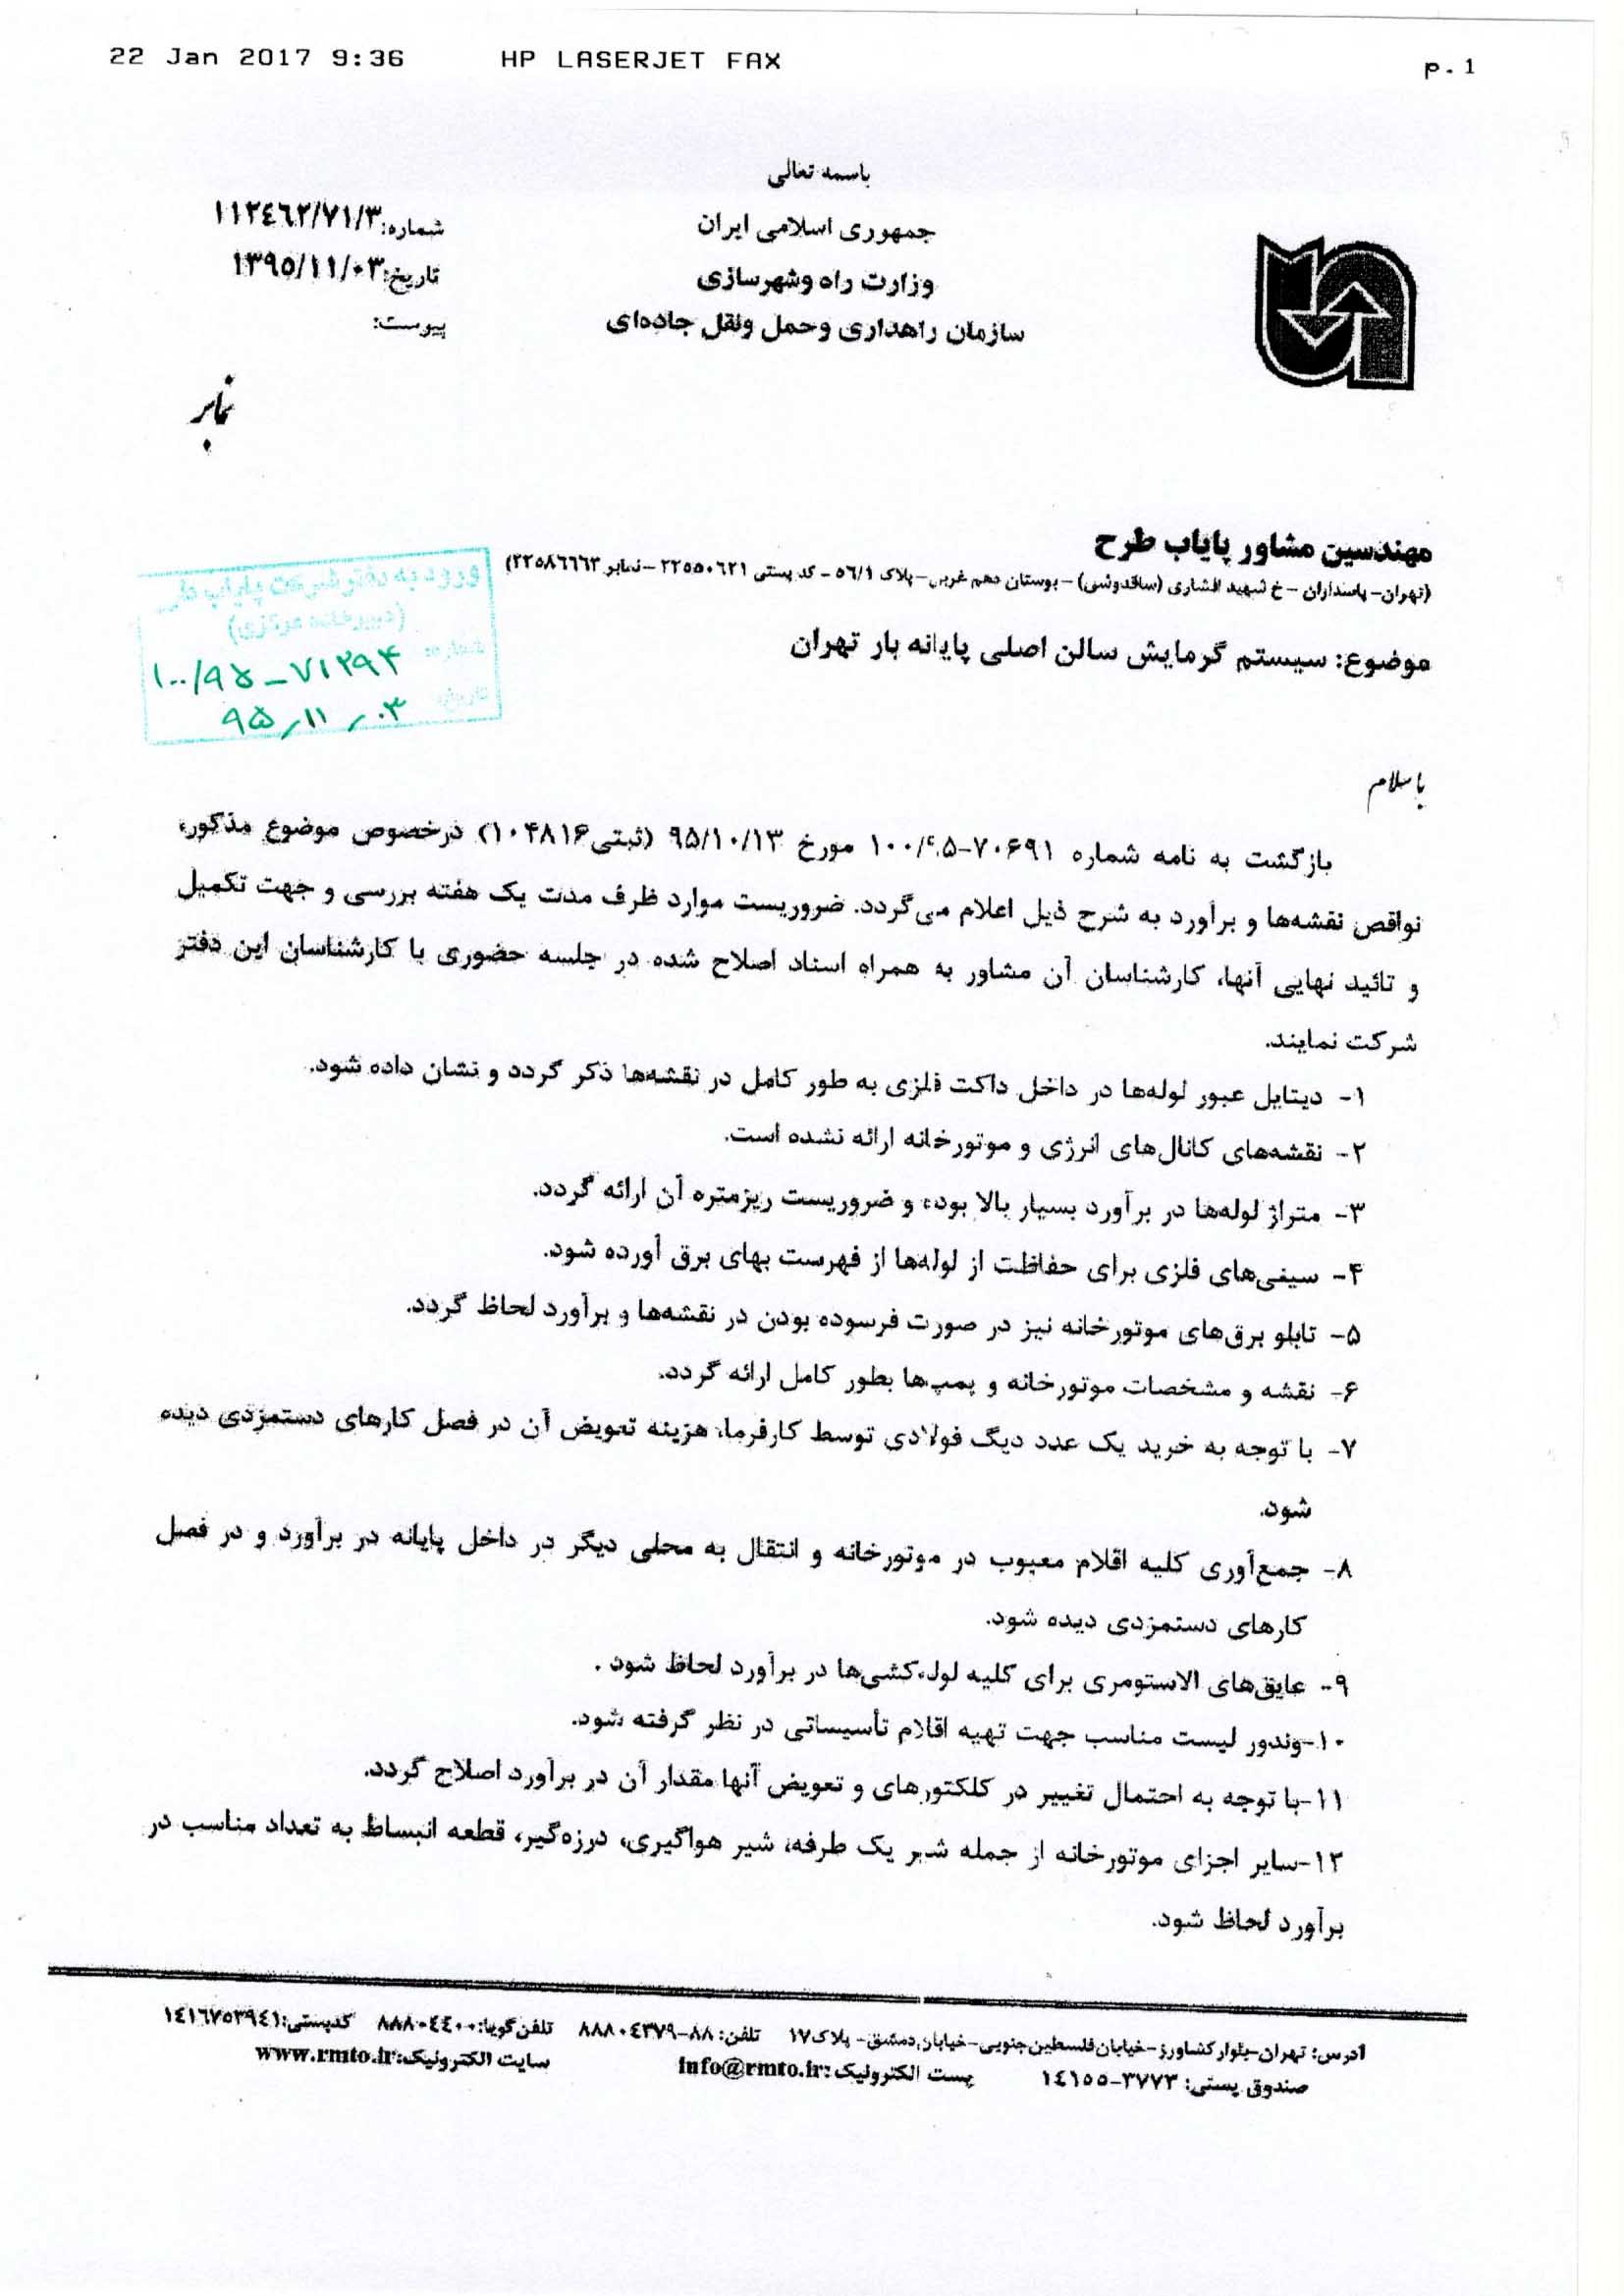 22 Jan 2017 9:36 HP LASERJET FAX p.1
باسمه تعالی
جمهوری اسلامی ایران
وزارت راه وشهرسازی
سازمان راهداری وحمل ونقل جاده‌ای
شماره: ۱۱۲۴۶۲/۷۱/۳
تاریخ: ۱۳۹۵/۱۱/۰۳
پیوست:
نمابر
مهندسین مشاور پایاب طرح
(تهران- پاسداران - خ شهید افشاری (ساقدوشی) - بوستان دهم غربی - پلاک ۵۶/۱ - کد پستی ۲۲۵۵۰۶۲۱ - نمابر ۲۲۵۸۶۶۶۳)
ورود به دفتر شرکت پایاب طرح
(دبیرخانه مرکزی)
شماره: ۱۰۰/۹۵-۷۱۲۹۴
تاریخ: ۹۵/۱۱/۰۳
موضوع: سیستم گرمایش سالن اصلی پایانه بار تهران
با سلام
بازگشت به نامه شماره ۷۰۶۹۱-۱۰۰/۹۵ مورخ ۹۵/۱۰/۱۳ (ثبتی ۱۰۴۸۱۶) درخصوص موضوع مذکور،
نواقص نقشه‌ها و برآورد به شرح ذیل اعلام می‌گردد. ضروریست موارد ظرف مدت یک هفته بررسی و جهت تکمیل
و تائید نهایی آنها، کارشناسان آن مشاور به همراه اسناد اصلاح شده در جلسه حضوری با کارشناسان این دفتر
شرکت نمایند.
۱- دیتایل عبور لوله‌ها در داخل داکت فلزی به طور کامل در نقشه‌ها ذکر گردد و نشان داده شود.
۲- نقشه‌های کانال‌های انرژی و موتورخانه ارائه نشده است.
۳- متراژ لوله‌ها در برآورد بسیار بالا بوده و ضروریست ریزمتره آن ارائه گردد.
۴- سینی‌های فلزی برای حفاظت از لوله‌ها از فهرست بهای برق آورده شود.
۵- تابلو برق‌های موتورخانه نیز در صورت فرسوده بودن در نقشه‌ها و برآورد لحاظ گردد.
۶- نقشه و مشخصات موتورخانه و پمپ‌ها بطور کامل ارائه گردد.
۷- با توجه به خرید یک عدد دیگ فولادی توسط کارفرما، هزینه تعویض آن در فصل کارهای دستمزدی دیده
شود.
۸- جمع‌آوری کلیه اقلام معیوب در موتورخانه و انتقال به محلی دیگر در داخل پایانه در برآورد و در فصل
کارهای دستمزدی دیده شود.
۹- عایق‌های الاستومری برای کلیه لوله‌کشی‌ها در برآورد لحاظ شود .
۱۰-وندور لیست مناسب جهت تهیه اقلام تأسیساتی در نظر گرفته شود.
۱۱-با توجه به احتمال تغییر در کلکتورهای و تعویض آنها مقدار آن در برآورد اصلاح گردد.
۱۲-سایر اجزای موتورخانه از جمله شیر یک طرفه، شیر هواگیری، درزه‌گیر، قطعه انبساط به تعداد مناسب در
برآورد لحاظ شود.
آدرس: تهران-بلوار کشاورز-خیابان فلسطین جنوبی-خیابان دمشق- پلاک ۱۷ تلفن: ۸۸-۸۸۸۰۴۳۷۹ تلفن گویا: ۸۸۸۰۴۴۰۰ کدپستی: ۱۴۱۶۷۵۳۹۴۱
صندوق پستی: ۳۷۷۳-۱۴۱۵۵ پست الکترونیک: info@rmto.ir سایت الکترونیک: www.rmto.ir